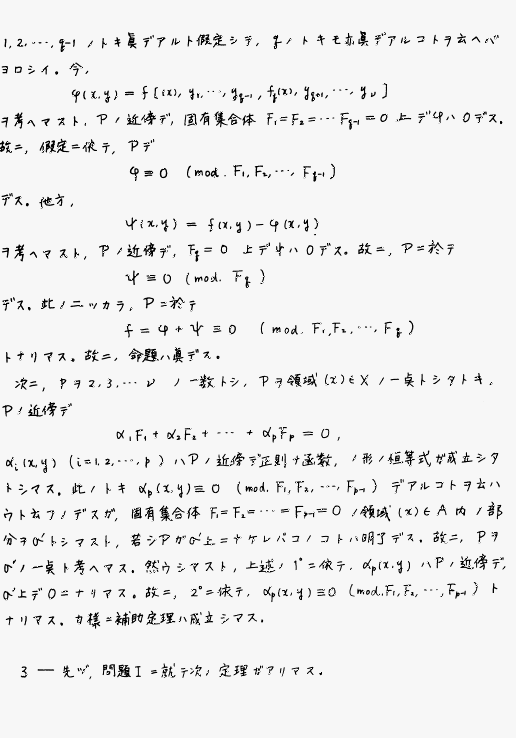 1, 2, ..., q-1 ノトキ眞デアルト假定シテ, q ノトキモ亦眞デアルコトヲ云ヘバ
ヨロシイ。今,
φ(x, y) = f [(x), y₁, ..., y_{q-1}, f_q(x), y_{q+1}, ..., y_ν]
ヲ考ヘマスト, P ノ近傍デ, 固有集合体 F₁ = F₂ = ... F_{q-1} = 0 上デ φ ハ 0 デス.
故ニ, 假定ニ依テ, P デ
φ ≡ 0 (mod. F₁, F₂, ..., F_{q-1})
デス. 他方,
ψ(x, y) = f(x, y) - φ(x, y)
ヲ考ヘマスト, P ノ近傍デ, F_q = 0 上デ ψ ハ 0 デス。故ニ, P ニ於テ
ψ ≡ 0 (mod. F_q)
デス. 此ノ二ツカラ, P ニ於テ
f = φ + ψ ≡ 0 (mod. F₁, F₂, ..., F_q)
トナリマス。故ニ, 命題ハ眞デス。
次ニ, p ヲ 2, 3, ... ν ノ一数トシ, P ヲ領域 (x) ∈ X ノ一点トシタトキ,
P ノ近傍デ
α₁F₁ + α₂F₂ + ... + α_pF_p = 0,
α_i(x, y) (i = 1, 2, ..., p) ハ P ノ近傍デ正則ナ函数, ノ形ノ恒等式ガ成立シタ
トシマス. 此ノトキ α_p(x, y) ≡ 0 (mod. F₁, F₂, ..., F_{p-1}) デアルコトヲ云ハ
ウト云フノデスガ, 固有集合体 F₁ = F₂ = ... = F_{p-1} = 0 ノ領域 (x) ∈ A 内ノ部
分ヲ σ トシマスト, 若シ P ガ σ 上ニナケレバコノコトハ明了デス. 故ニ, P ヲ
σ ノ一点ト考ヘマス. 然ウシマスト, 上述ノ 1° ニ依テ, α_p(x, y) ハ P ノ近傍デ,
σ 上デ 0 ニナリマス. 故ニ, 2° ニ依テ, α_p(x, y) ≡ 0 (mod. F₁, F₂, ..., F_{p-1}) ト
ナリマス. カ様ニ補助定理ハ成立シマス.
3 — 先ヅ, 問題 I ニ就テ次ノ定理ガアリマス.